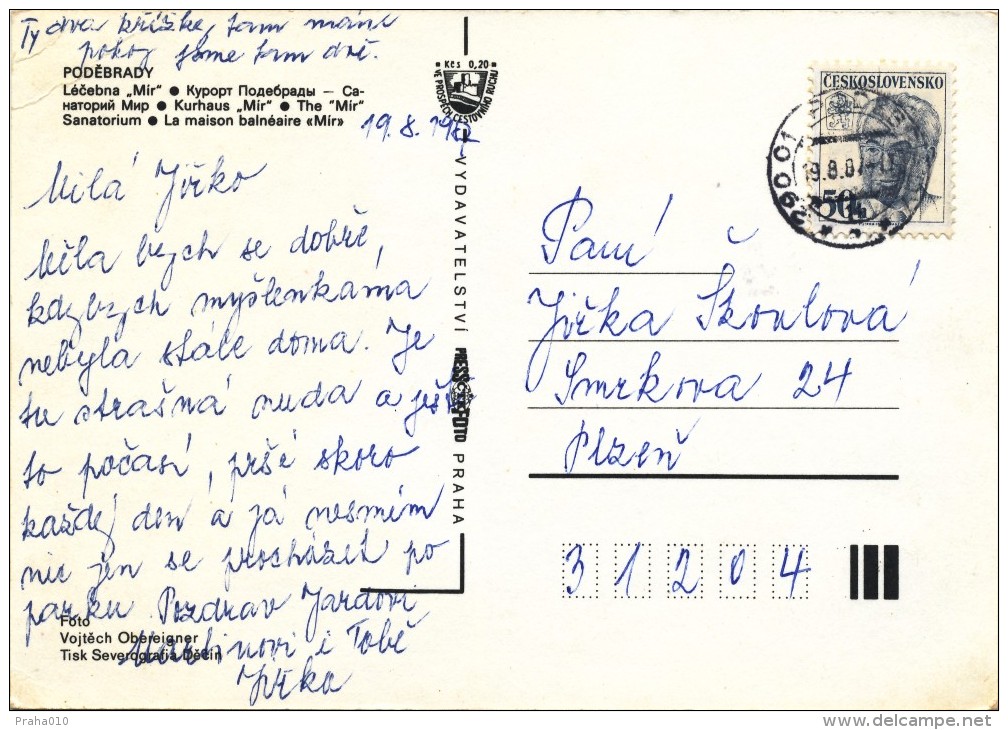 Ty dva křížke, tam máme
pokoj jsme tam dvě.
PODĚBRADY
Léčebna „Mír" ● Курорт Подебрады — Са-
наторий Мир ● Kurhaus „Mír" ● The "Mír"
Sanatorium ● La maison balnéaire «Mír»
19.8.1987
Milá Jiřko
Měla bych se dobře,
kdybych myšlenkáma
nebyla stále doma. Je
tu strašná nuda a ještě
to počasí, prší skoro
každej den a já nesmím
nic jen se procházet po
parku Pozdrav Jardovi,
Martinovi i Tobě
Jiřka
Foto
Vojtěch Obereigner
Tisk Severografia Děčín
Kčs 0,20
VE PROSPĚCH CESTOVNÍHO RUCHU
VYDAVATELSTVÍ PRESSFOTO PRAHA
ČESKOSLOVENSKO
50h
290 01
19.8.87
Paní
Jiřka Škoulová
Smrkova 24
Plzeň
31204
Praha010
www.delcampe.net